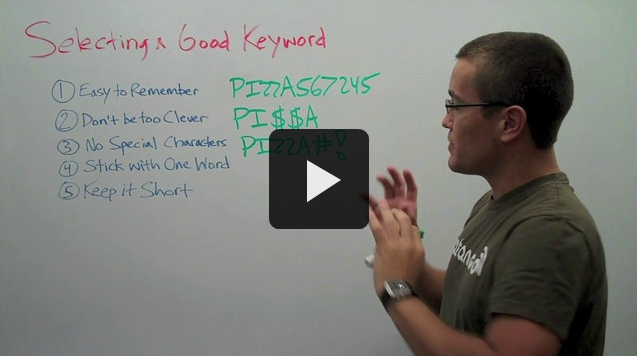 Selecting a Good Keyword
① Easy to Remember PIZZA567245
② Don't be too Clever PI$$A
③ No Special Characters PIZZA#!
④ Stick with One Word
⑤ Keep it Short